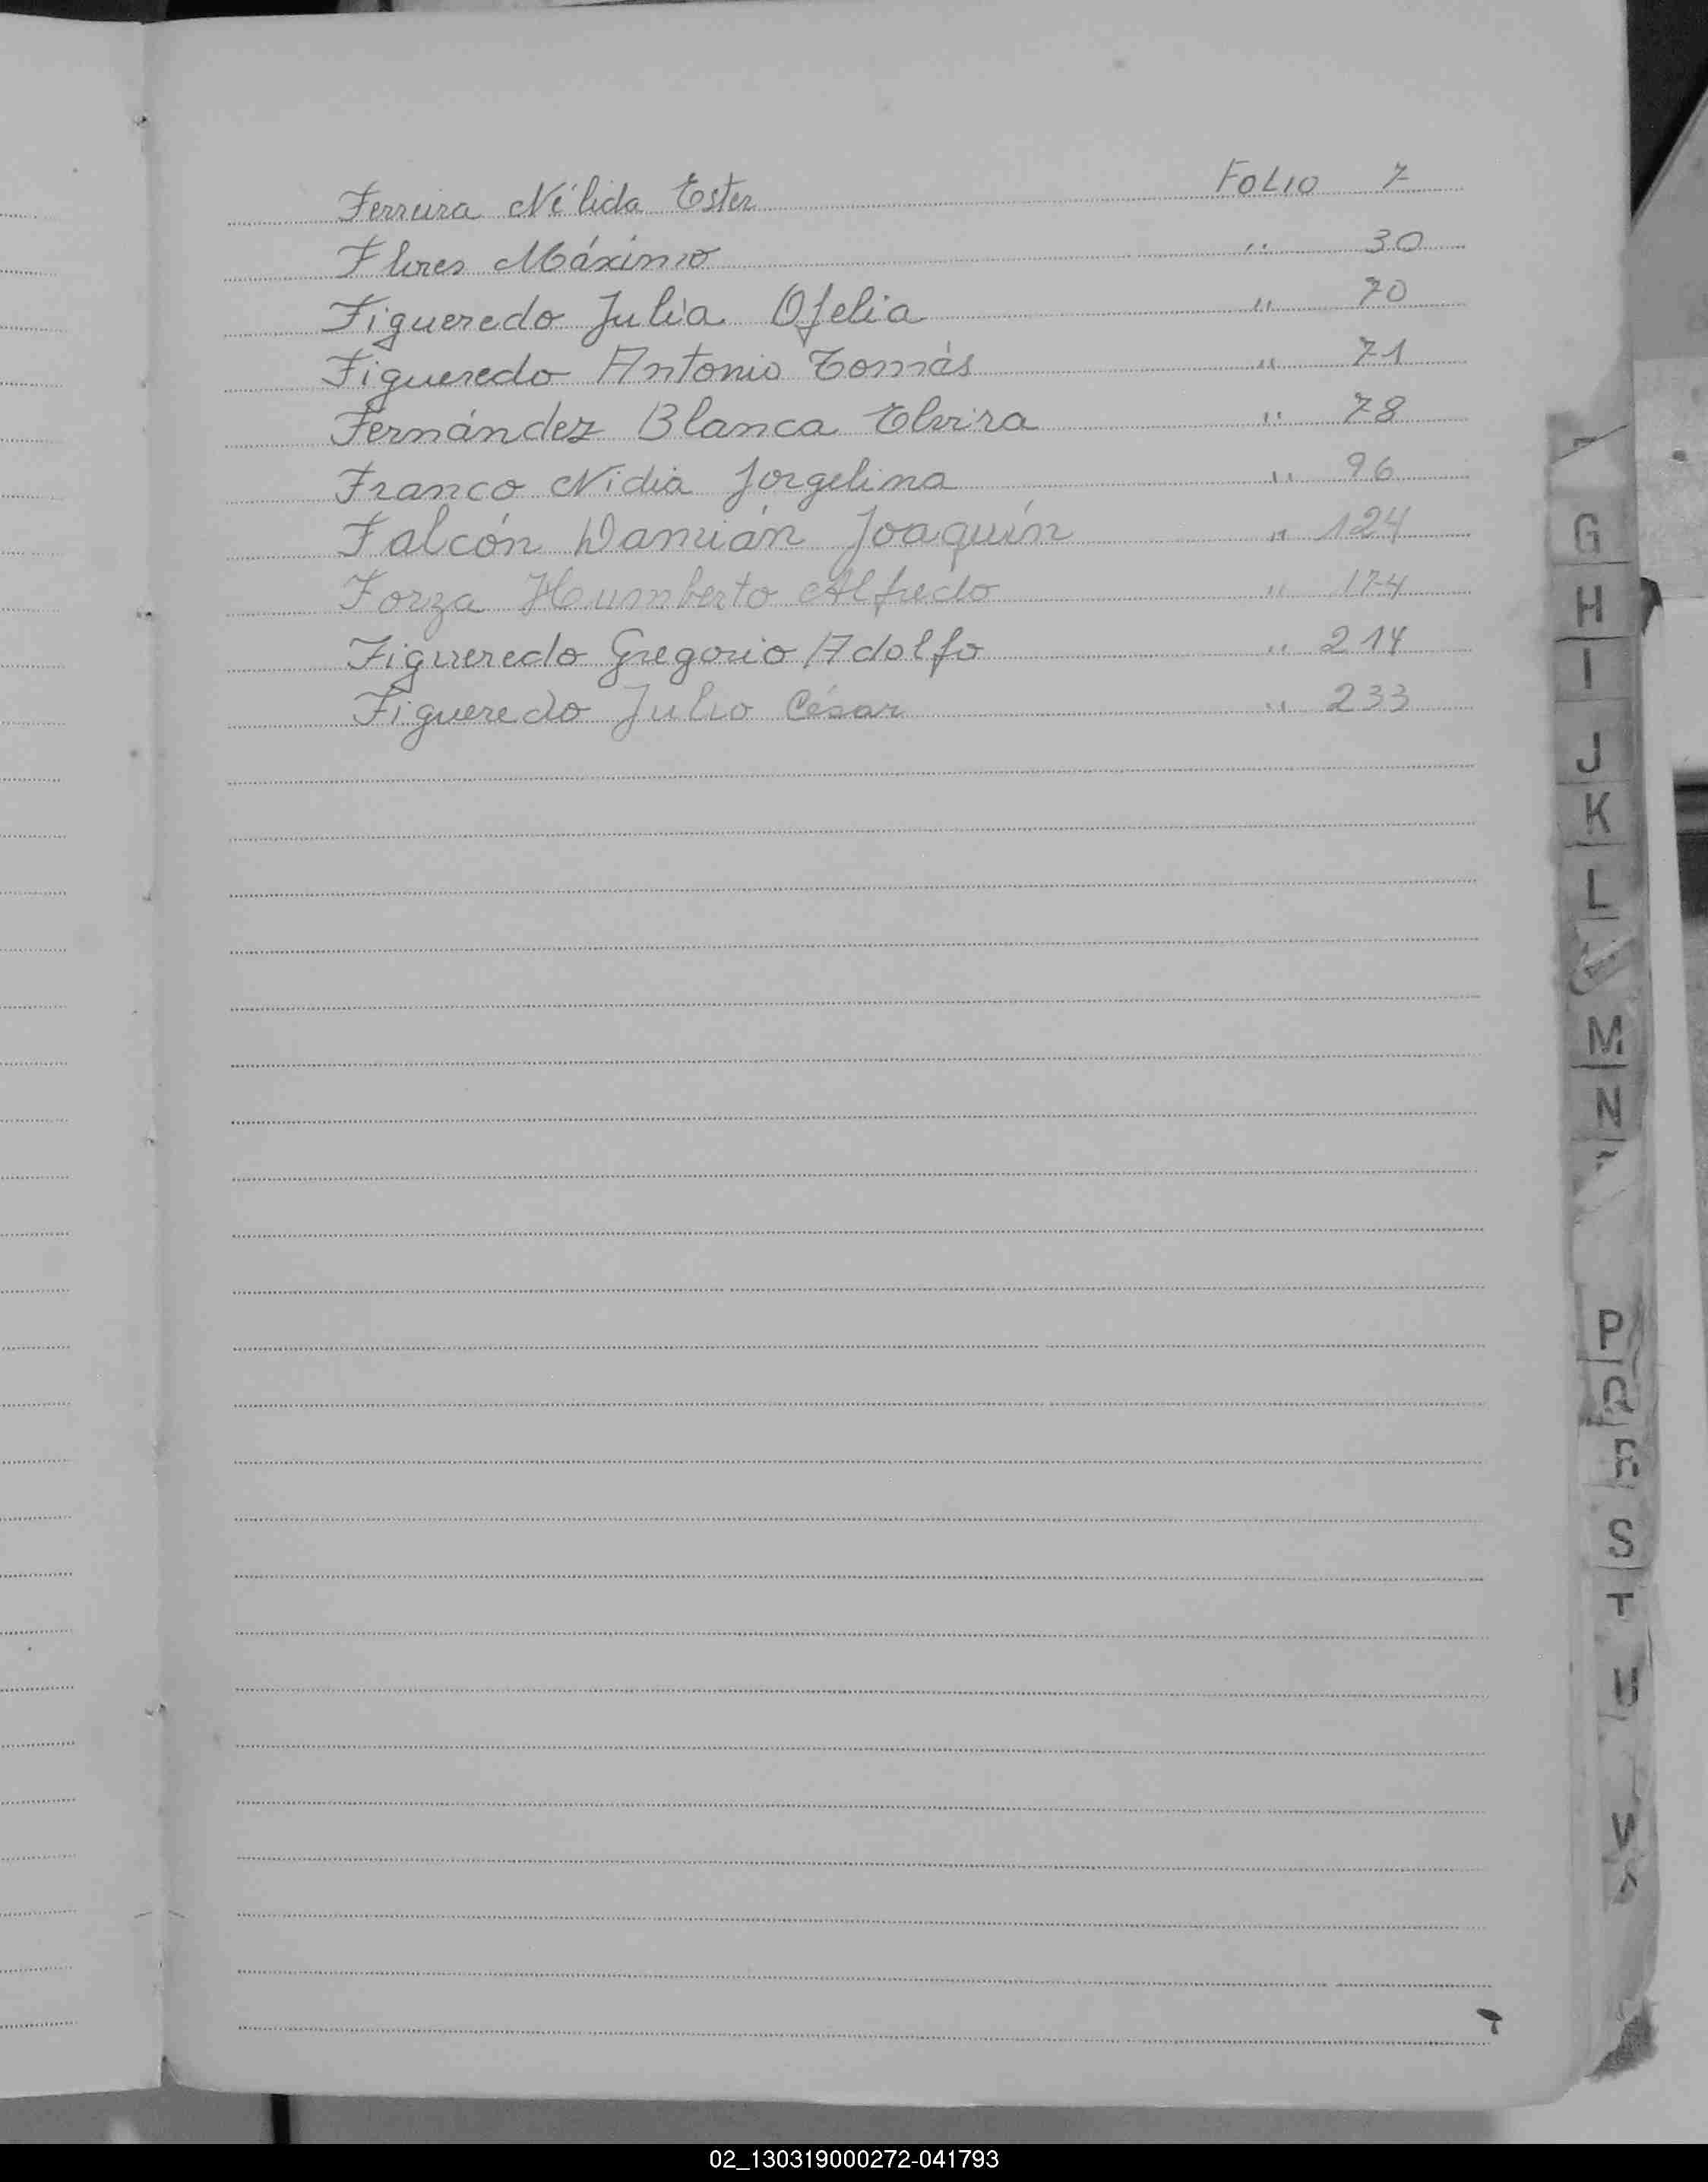 Ferreira Nélida Ester FOLIO 7
Flores Máximo " 30
Figueredo Julia Ofelia " 70
Figueredo Antonio Tomás " 71
Fernández Blanca Elvira " 78
Franco Nidia Jorgelina " 96
Falcón Damián Joaquín " 124
Forza Humberto Alfredo " 174
Figueredo Gregorio Adolfo " 214
Figueredo Julio César " 233
G
H
I
J
K
L
M
N
P
Q
R
S
T
U
V
02_130319000272-041793